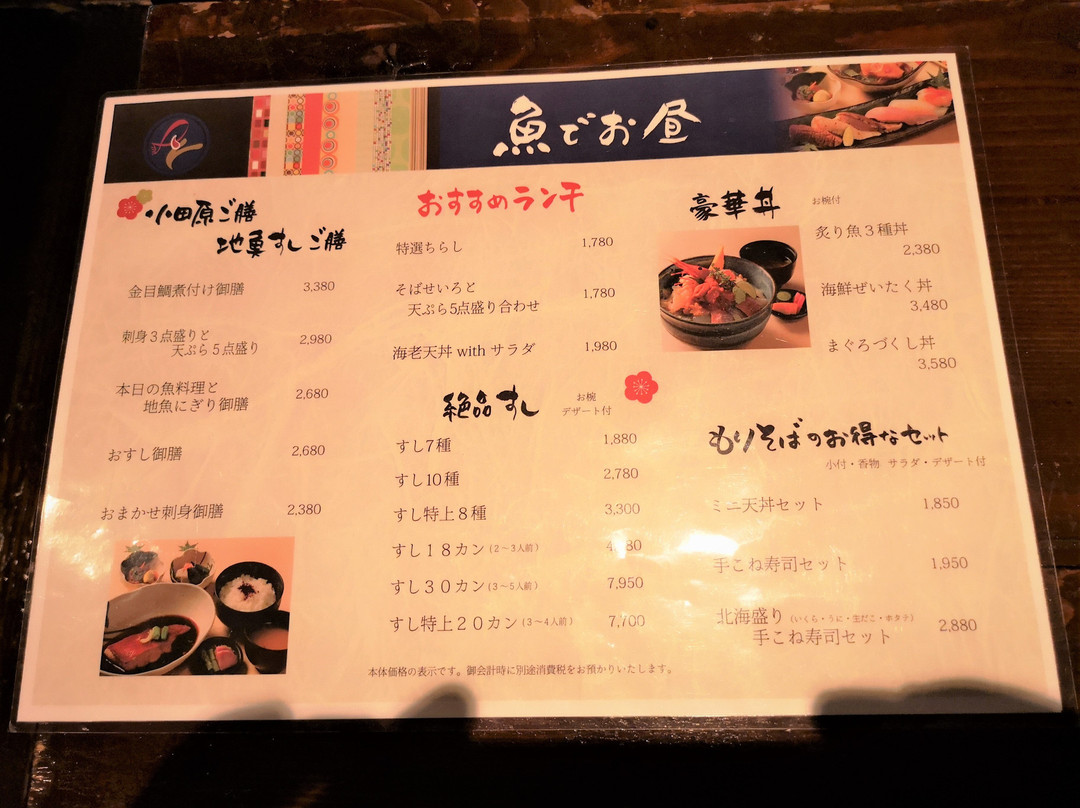 魚でお昼
小田原ご膳
地魚すしご膳
金目鯛煮付け御膳 3,380
刺身３点盛りと
天ぷら５点盛り 2,980
本日の魚料理と
地魚にぎり御膳 2,680
おすし御膳 2,680
おまかせ刺身御膳 2,380
おすすめランチ
特選ちらし 1,780
そばせいろと
天ぷら5点盛り合わせ 1,780
海老天丼 with サラダ 1,980
絶品すし
お椀
デザート付
すし7種 1,880
すし10種 2,780
すし特上８種 3,300
すし１８カン(２〜３人前)
すし３０カン(３〜５人前) 7,950
すし特上２０カン(３〜４人前) 7,700
本体価格の表示です。御会計時に別途消費税をお預かりいたします。
豪華丼 お椀付
炙り魚３種丼
2,380
海鮮ぜいたく丼
3,480
まぐろづくし丼
3,580
もりそばのお得なセット
小付・香物 サラダ・デザート付
ミニ天丼セット 1,850
手こね寿司セット 1,950
北海盛り(いくら・うに・生だこ・ホタテ)
手こね寿司セット 2,880